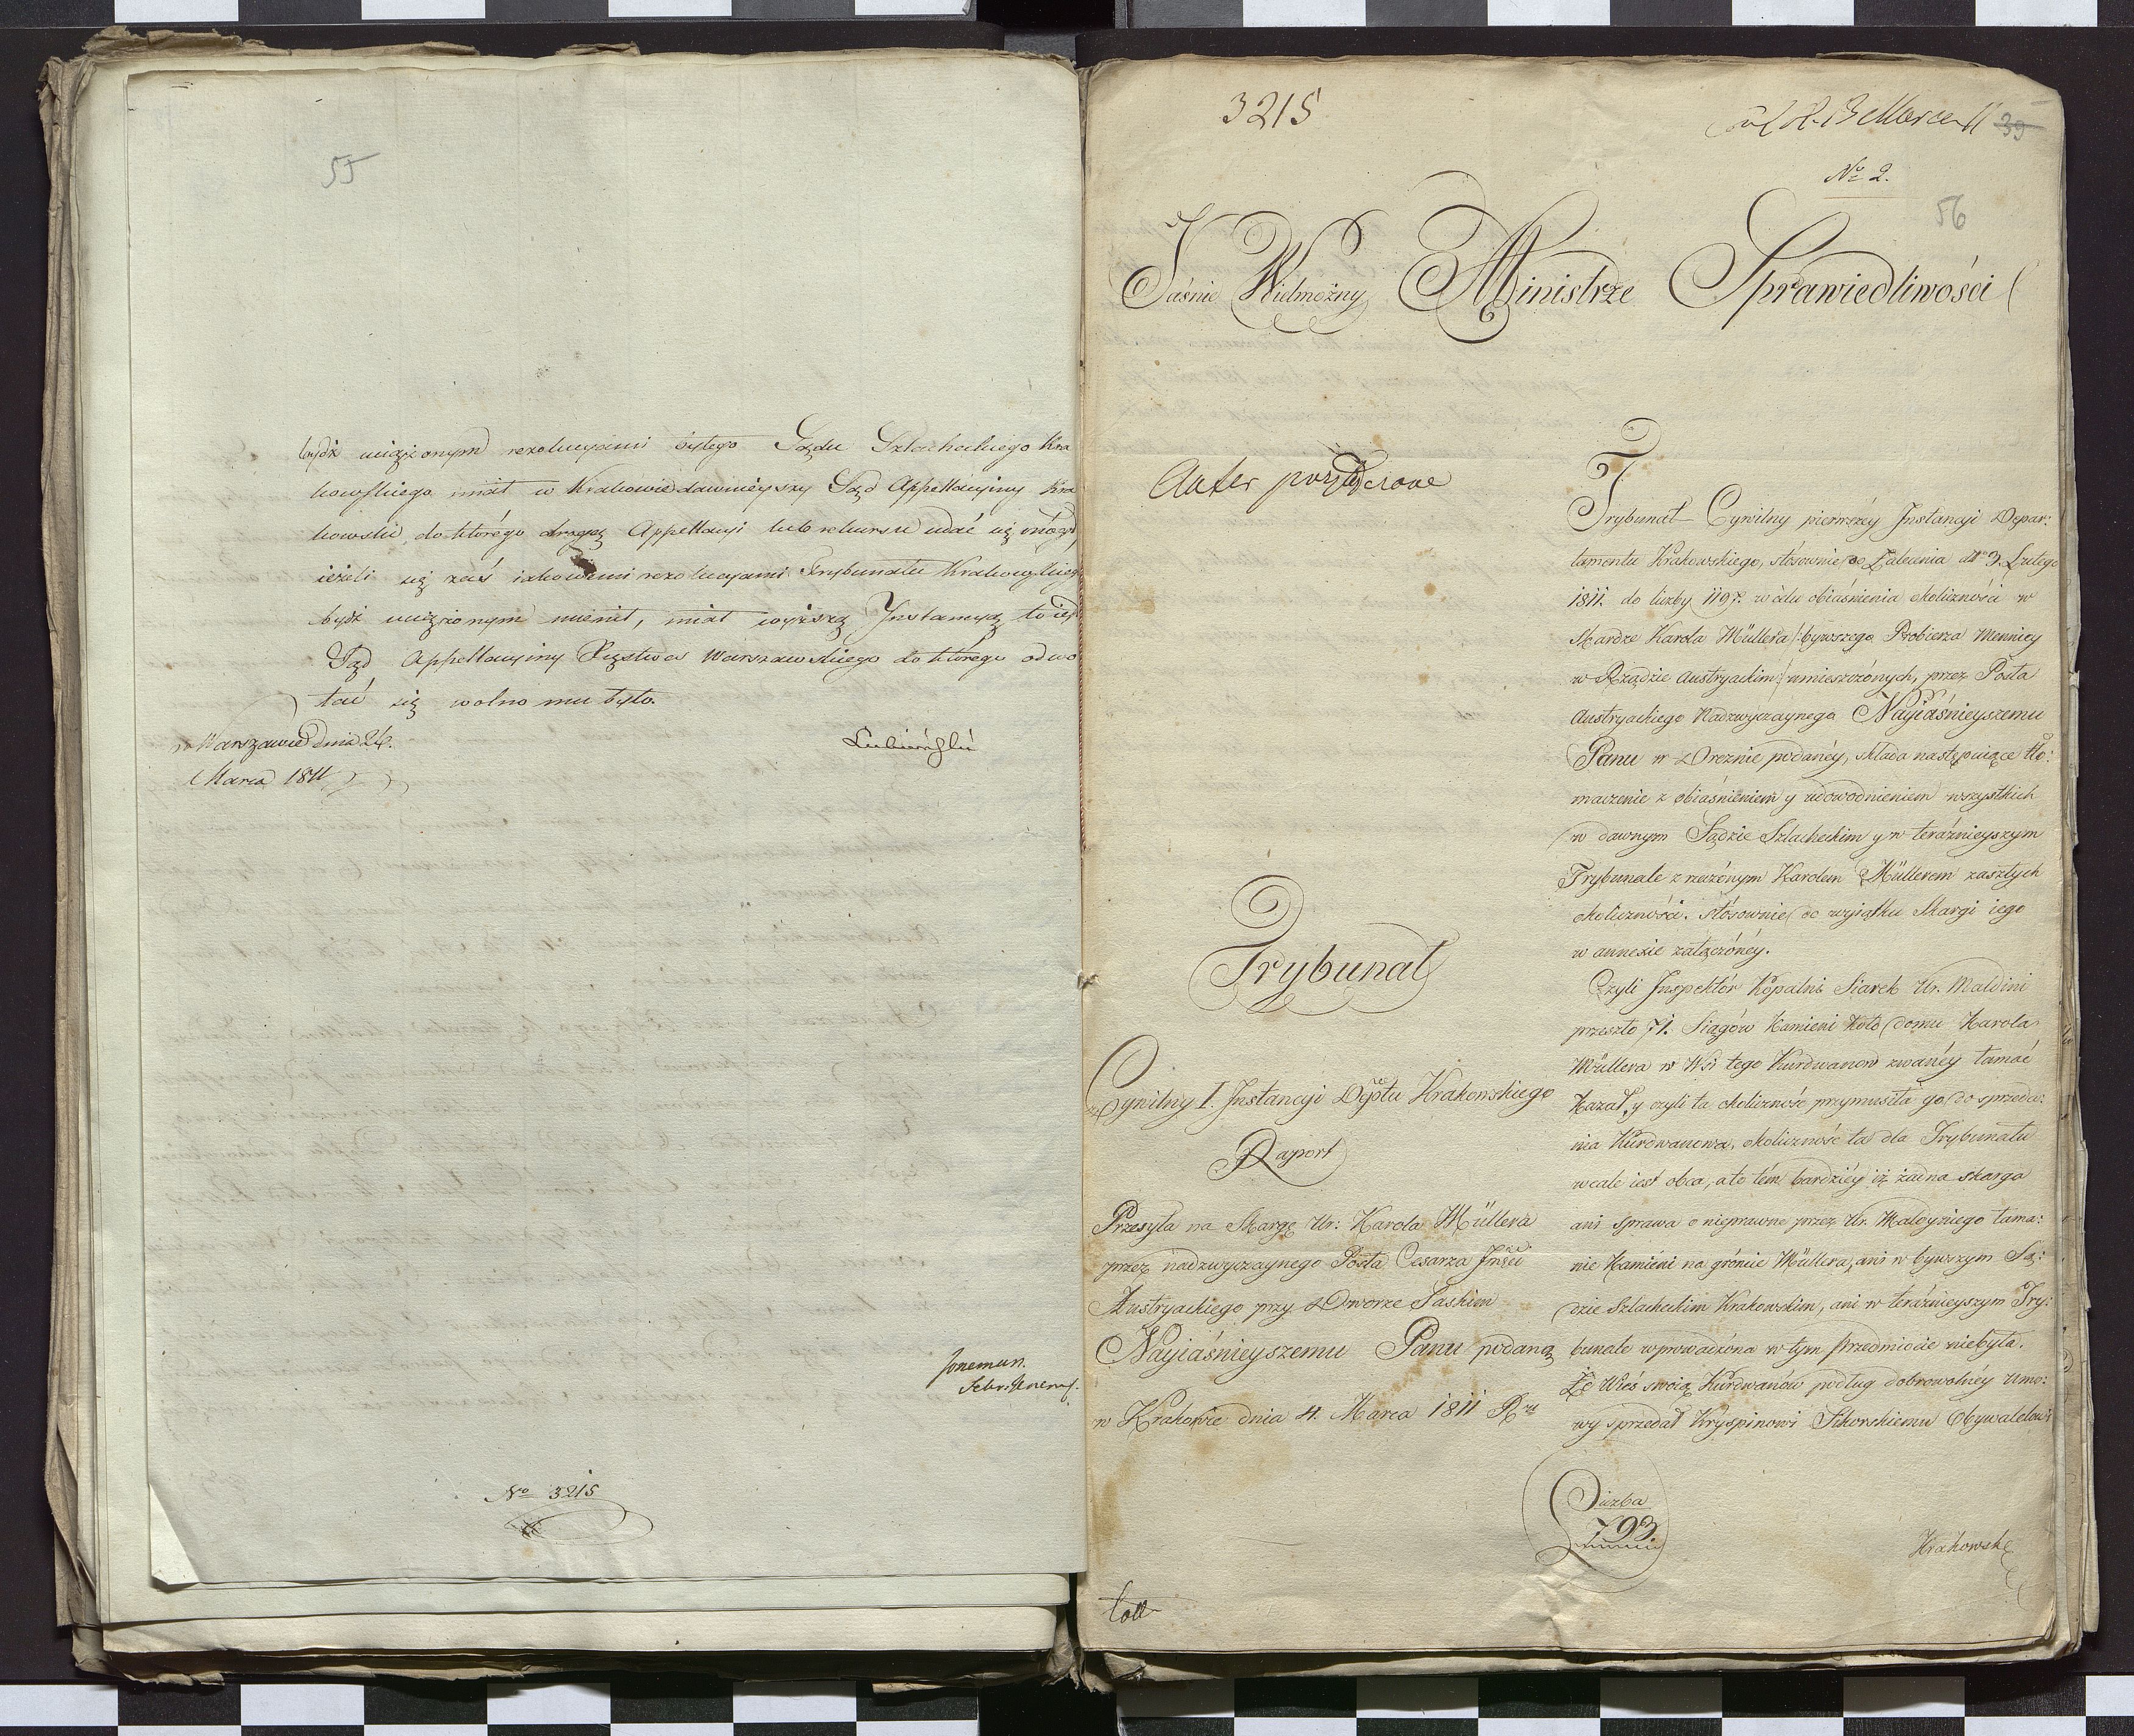 55
bydź uciążonym rezolucyami byłego Sądu Szlacheckiego Kra
kowskiego miał w Krakowie dawnieyszy Sąd Appellacyiny Kra
kowski, do którego drogą Appellacyi lub rekursu udać się mógł,
ieżeli się zaś iakowemi rezolucyami Trybunału Krakowskiego
bydź uciążonym mienił, miał wyższą Instancyą to iest
Sąd Appellacyiny Xięstwa Warszawskiego do którego odwo
łać się wolno mu było.
w Warszawie dnia 26.
Marca 1811
Łubieński
No 3215
3215
39
No 2.
56
Jaśnie Wielmożny Ministrze Sprawiedliwości
Trybunał
Cywilny I. Instancyi Dpttu Krakowskiego
Raport
Przesyła na Skargę Ur: Karola Müllera
przez nadzwyczaynego Posła Cesarza Jmści
Austryackiego przy Dworze Saskim
Nayiaśnieyszemu Panu podaną
w Krakowie dnia 4. Marca 1811 Ru
Trybunał Cywilny pierwszéy Instancyi Depar:
tamentu Krakowskiego, stósownie do Zalecenia dto 3. Lutego
1811. do liczby 1197. w celu obiaśnienia okoliczności w
Skardze Karola Müllera /: bywszego Probierza Mennicy
w Rządzie Austryackim :/ umieszczónych, przez Posła
Austryackiego Nadzwyczaynego Nayiaśnieyszemu
Panu w Dreznie podanéy, składa następuiące tło:
maczenie z obiaśnieniem y udowodnieniem wszystkich
w dawnym Sądzie Szlacheckim y w teraźnieyszym
Trybunale z rzeczónym Karolem Müllerem zaszłych
okoliczności. stósownie do wyiątku Skargi iego
w annexie załączónéy.
Czyli Inspektór Kopalni Siarek Ur. Maldini
przeszło 71. Siągów Kamieni koło domu Karola
Müllera w Wsi tego Kurdwanow zwanéy łamać
Kazał, y czyli ta okoliczność przymusiła go do sprzeda:
nia Kurdwanowa, okoliczność ta dla Trybunału
wcale iest obca, a to tém bardziéy iż żadna skarga
ani sprawa o nieprawne przez Ur. Maldyniego łama:
nie Kamieni na gróncie Müllera, ani w bywszym Są:
dzie Szlacheckim Krakowskim, ani w teraźnieyszym Try:
bunale wprowadzóna w tym przedmiocie niebyła.
Że Wieś swoią Kurdwanów podług dobrowolnéy Umo:
wy sprzedał Kryspinowi Sikorskiemu Obywatelowi
Liczba
793.
Krakowski